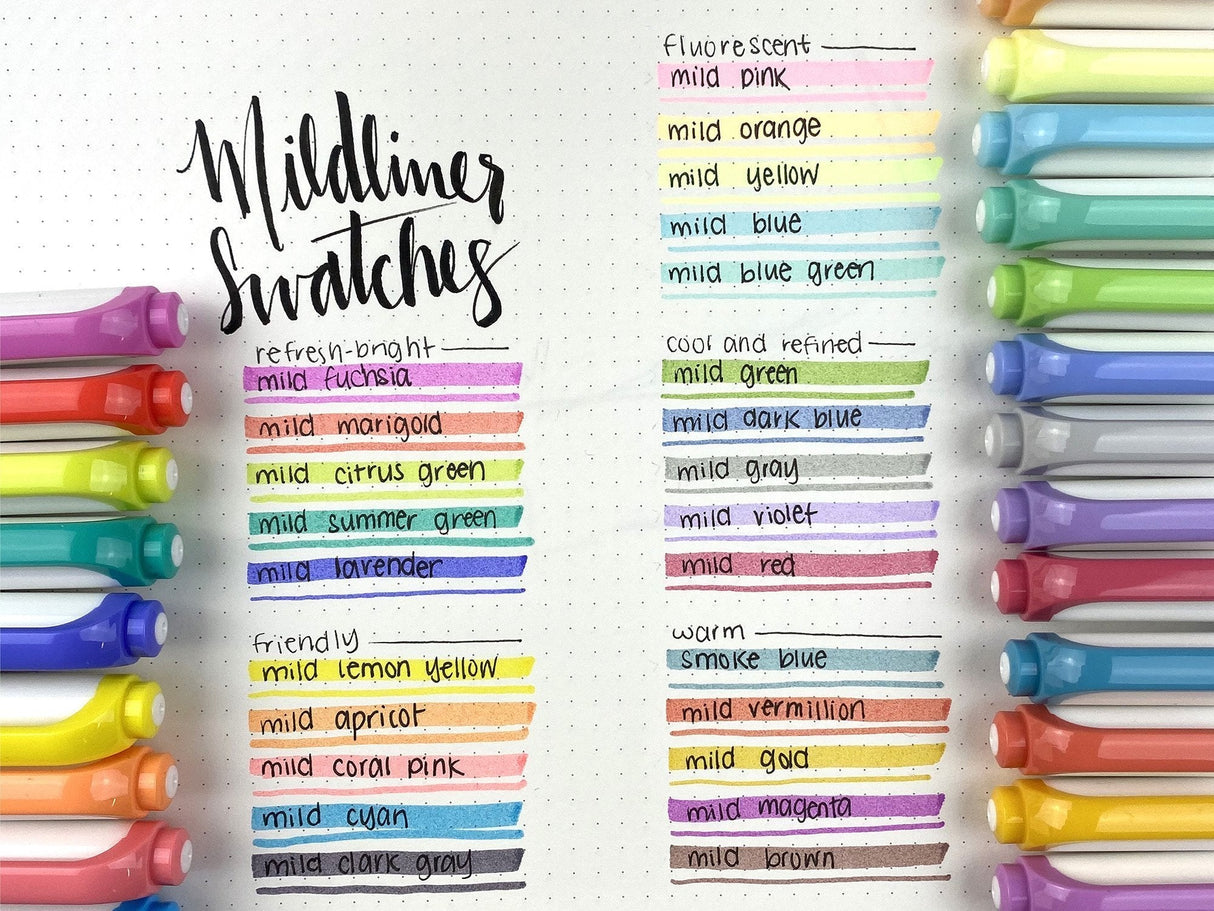 Mildliner
Swatches
refresh-bright
mild fuchsia
mild marigold
mild citrus green
mild summer green
mild lavender
friendly
mild lemon yellow
mild apricot
mild coral pink
mild cyan
mild dark gray
fluorescent
mild pink
mild orange
mild yellow
mild blue
mild blue green
cool and refined
mild green
mild dark blue
mild gray
mild violet
mild red
warm
smoke blue
mild vermillion
mild gold
mild magenta
mild brown